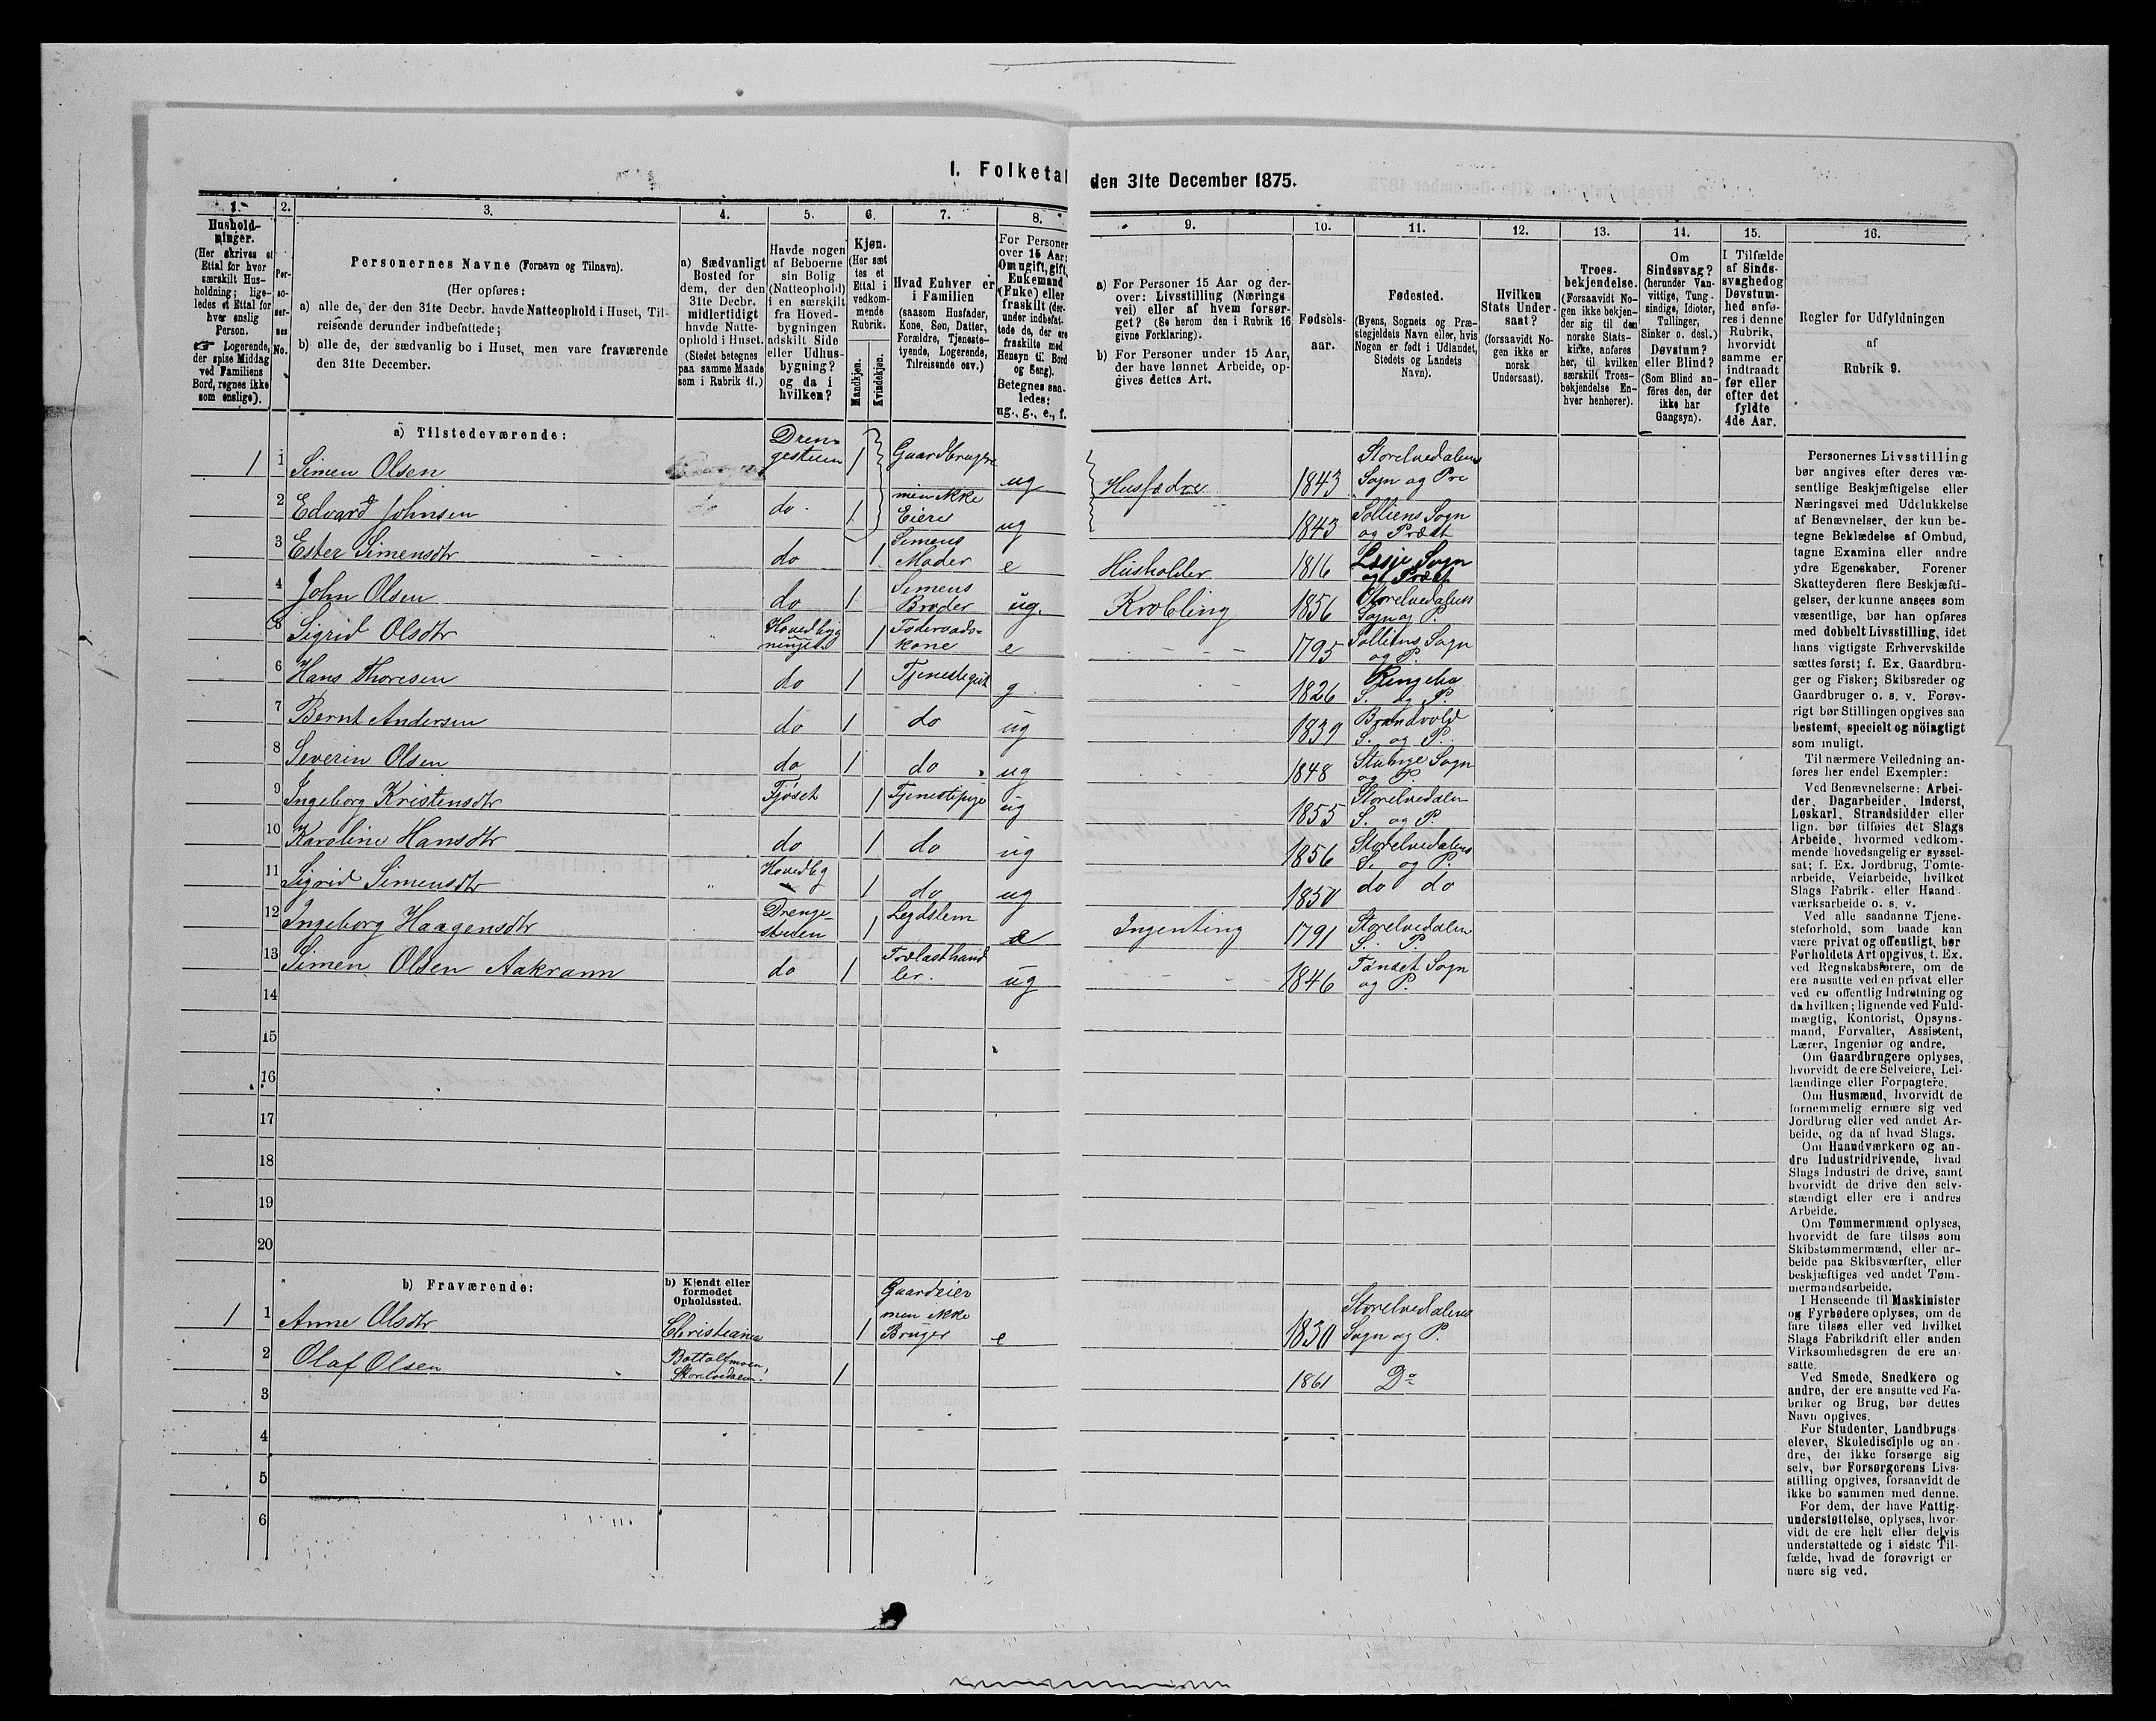 I. Folketal
den 31te December 1875.
1.
Hushold-
ninger.
(Her skrives et
Ettal for hver
særskilt Hus-
holdning; lige-
ledes et Ettal for
hver enslig
Person.
☛ Logerende,
der spise Middag
ved Familiens
Bord, regnes ikke
som enslige).
2.
Per-
so-
ner-
nes
No.
3.
Personernes Navne (Fornavn og Tilnavn).
(Her opføres:
a) alle de, der den 31te Decbr. havde Natteophold i Huset, Til-
reisende derunder indbefattede;
b) alle de, der sædvanlig bo i Huset, men vare fraværende
den 31te December.
4.
a) Sædvanligt
Bosted for
dem, der den
31te Decbr.
midlertidigt
havde Natte-
ophold i Huset.
(Stedet betegnes
paa samme Maade
som i Rubrik 11.)
5.
Havde nogen
af Beboerne
sin Bolig
(Natteophold)
i en særskilt
fra Hoved-
bygningen
adskilt Side
eller Udhus-
bygning?
og da i
hvilken?
6.
Kjøn.
(Her sæt
tes et
Ettal i
vedkom-
mende
Rubrik.
Mandkjøn.
Kvindekjøn.
7.
Hvad Enhver er
i Familien
(saasom Husfader,
Kone, Søn, Datter,
Forældre, Tjeneste-
tyende, Logerende,
Tilreisende osv.)
8.
For Personer
over 15 Aar:
Om ugift, gift,
Enkemand
(Enke) eller
fraskilt (der-
under indbefat-
tede de, der ere
fraskilte med
Hensyn til Bord
og Seng).
Betegnes saa-
ledes:
ug., g., e., f.
9.
a) For Personer 15 Aar og der-
over: Livsstilling (Nærings
vei) eller af hvem forsør-
get? (Se herom den i Rubrik 16
givne Forklaring).
b) For Personer under 15 Aar,
der have lønnet Arbeide, op-
gives dettes Art.
10.
Fødsels-
aar.
11.
Fødested.
(Byens, Sognets og Præ-
stegjeldets Navn eller, hvis
Nogen er født i Udlandet,
Stedets og Landets
Navn).
12.
Hvilken
Stats Under-
saat?
(forsaavidt No-
gen ikke er
norsk
Undersaat).
13.
Troes-
bekjendelse.
(Forsaavidt No-
gen ikke bekjen-
der sig til den
norske Stats-
kirke, anføres
her, til hvilken
særskilt Troes-
bekjendelse En-
hver henhører).
14.
Om
Sindssvag?
(herunder Van-
vittige, Tung-
sindige, Idioter,
Tullinger,
Sinker o. desl.)
Døvstum?
eller Blind?
(Som Blind an-
føres den, der
ikke har
Gangsyn).
15.
I Tilfælde
af Sinds-
svaghed og
Døvstum-
hed anfø-
res i denne
Rubrik,
hvorvidt
samme er
indtraadt
før eller
efter det
fyldte
4de Aar.
16.
Regler for Udfyldningen
af
Rubrik 9.
a) Tilstedeværende:
1 1 Simen Olsen Dren- gestuen 1 Gaardbrugre ug Husfædre 1843 Storelvedalens Sogn og Pre
2 Edvard Johnsen do 1 men ikke Eiere ug 1843 Solliens Sogn og Præst
3 Ester Simensdtr do 1 Simens Moder e Husholder 1816 Lesje Sogn og Præst
4 John Olsen do 1 Simens Broder ug. Krobling 1856 Storelvedalens Sogn og P.
5 Sigrid Olsdtr Hovedbyg ninget 1 Foderaads- kone e 1795 Solliens Sogn og P.
6 Hans Thoresen do 1 Tjenestegut g 1826 Ringebu S. og P.
7 Bernt Andersen do 1 do ug 1839 Brandvold S. og P.
8 Severin Olsen do 1 do ug 1848 Stange Sogn og P.
9 Ingeborg Kristensdtr Fjøset 1 Tjenestepige ug 1855 Storelvedalen S. og P.
10 Karoline Hansdtr do 1 do ug 1856 Storelvedalens S. og P.
11 Sigrid Simensdtr Hovedbyg 1 do ug 1850 do do
12 Ingeborg Haagensdtr Drenge- stuen 1 Legdslem e Ingenting 1791 Storelvedalen S. P.
13 Simen Olsen Aakrann do 1 Trælasthand ler. ug 1846 Tønset Sogn og P.
14
15
16
17
18
19
20
b) Fraværende:
b) Kjendt eller
formodet
Opholdssted.
1 1 Anne Olsdtr Christiania 1 Gaardeier men ikke Bruger e 1830 Storelvedalens Sogn og P.
2 Olaf Olsen Bottolfmoen, Storelvedalen. 1 1861 Do
3
4
5
6
Personernes Livsstilling
bør angives efter deres væ-
sentlige Beskjæftigelse eller
Næringsvei med Udelukkelse
af Benævnelser, der kun be-
tegne Beklædelse af Ombud,
tagne Examina eller andre
ydre Egenskaber. Forener
Skatteyderen flere Beskjæfti-
gelser, der kunne ansees som
væsentlige, bør han opføres
med dobbelt Livsstilling, idet
hans vigtigste Erhvervskilde
sættes først; f. Ex. Gaardbru-
ger og Fisker; Skibsreder og
Gaardbruger o. s. v. Forøv-
rigt bør Stillingen opgives saa
bestemt, specielt og nöiagtigt
som muligt.
Til nærmere Veiledning an-
føres her endel Exempler:
Ved Benævnelserne: Arbei-
der, Dagarbeider, Inderst,
Løskarl, Strandsidder eller
lign. bør tilføies det Slags
Arbeide, hvormed vedkom-
mende hovedsagelig er syssel-
sat; f. Ex. Jordbrug, Tomte-
arbeide, Veiarbeide, hvilket
Slags Fabrik- eller Haand-
værksarbeide o. s. v.
Ved alle saadanne Tjene-
steforhold, som baade kan
være privat og offentligt, bør
Forholdets Art opgives, t. Ex.
ved Regnskabsførere, om de
ere ansatte ved en privat eller
ved en offentlig Indretning og
da hvilken; lignende ved Fuld-
mægtig, Kontorist, Opsyns-
mand, Forvalter, Assistent,
Lærer, Ingeniør og andre.
Om Gaardbrugere oplyses,
hvorvidt de ere Selveiere, Lei-
lændinge eller Forpagtere.
Om Husmænd, hvorvidt de
fornemmelig ernære sig ved
Jordbrug eller ved andet Ar-
beide, og da af hvad Slags.
Om Haandværkere og an-
dre Industridrivende, hvad
Slags Industri de drive, samt
hvorvidt de drive den selv-
stændigt eller ere i andres
Arbeide.
Om Tømmermænd oplyses,
hvorvidt de fare tilsøs som
Skibstømmermænd, eller ar-
beide paa Skibsværfter, eller
beskjæftiges ved andet Tøm-
mermandsarbeide.
I Henseende til Maskinister
og Fyrbødere oplyses, om de
fare tilsøs eller ved hvilket
Slags Fabrikdrift eller anden
Virksomhedsgren de ere an-
satte.
Ved Smede, Snedkere og
andre, der ere ansatte ved Fa-
briker og Brug, bør dettes
Navn opgives.
For Studenter, Landbrugs
elever, Skoledisciple og an-
dre, der ikke forsørge sig
selv, bør Forsørgerens Livs-
stilling opgives, forsaavidt de
ikke bo sammen med denne.
For dem, der have Fattig-
understøttelse, oplyses, hvor-
vidt de ere helt eller delvis
understøttede og i sidste Til-
fælde, hvad de forøvrigt er
nære sig ved.